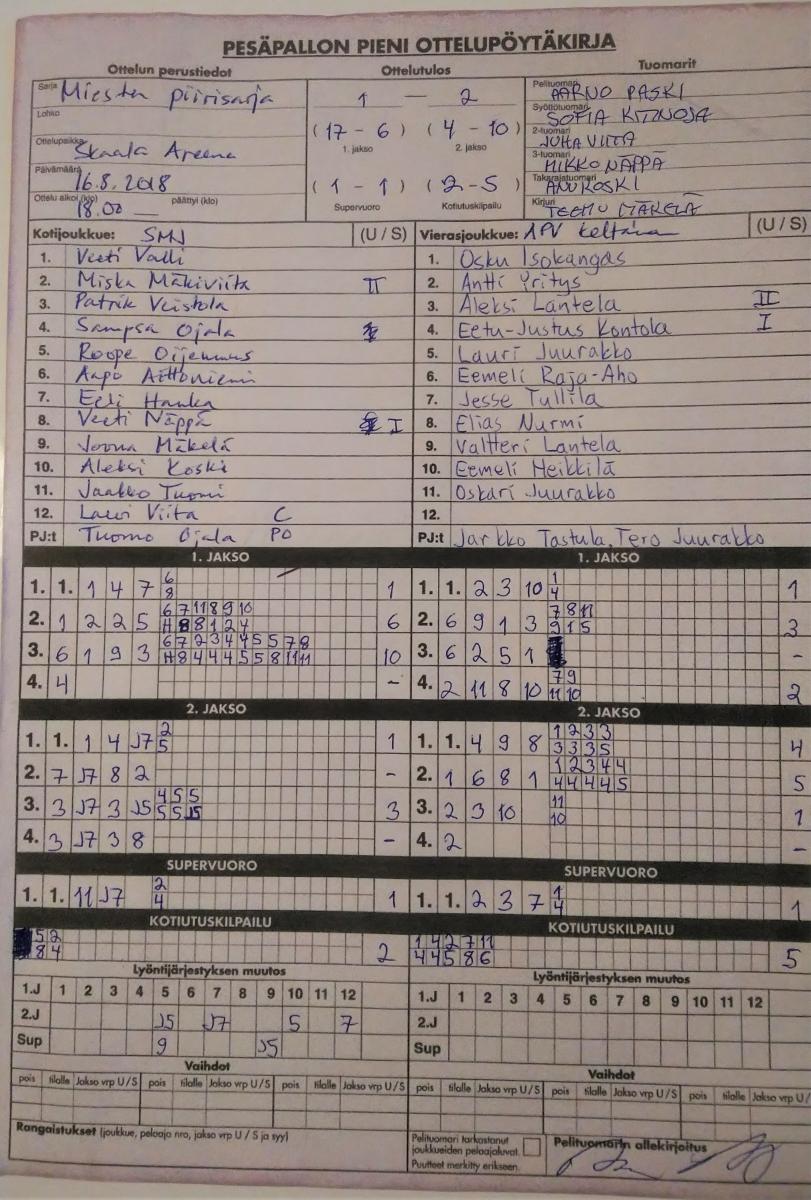 PESÄPALLON PIENI OTTELUPÖYTÄKIRJA
Ottelun perustiedot Ottelutulos Tuomarit
Sarja Miesten piirisarja
Lohko
Ottelupaikka Skaala Areena
Päivämäärä 16.8.2018
Ottelu alkoi (klo) 18.00 päättyi (klo)
1 — 2
(17 - 6) (4 - 10)
1. jakso 2. jakso
(1 - 1) (2 - 5)
Supervuoro Kotiutuskilpailu
Pelituomari AARNO PASKI
Syöttötuomari SOFIA
2-tuomari JUHA VIITA
3-tuomari MIKKO NÄPPÄ
Takarajatuomari ANU KOSKI
Kirjuri TEEMU MÄKELÄ
Kotijoukkue: SMJ (U / S) Vierasjoukkue: APV Keltainen (U / S)
1. Veeti Valli 1. Osku Isokangas
2. Miska Mäkiviita II 2. Antti Yritys
3. Patrik Veistola 3. Aleksi Lantela II
4. Sampsa Ojala 4. Eetu-Justus Kontola I
5. Roope 5. Lauri Juurakko
6. Aapo 6. Eemeli Raja-Aho
7. Eeli Hanka 7. Jesse Tullila
8. Veeti Näppä I 8. Elias Nurmi
9. Joona Mäkelä 9. Valtteri Lantela
10. Aleksi Koski 10. Eemeli Heikkilä
11. Jaakko Tuomi 11. Oskari Juurakko
12. Lauri Viita C 12.
PJ:t Tuomo Ojala PO PJ:t Jarkko Tastula, Tero Juurakko
1. JAKSO 1. JAKSO
1. 1. 1 4 7 6 1 1. 1. 2 3 10 1 1
8 4
2. 1 2 2 5 6 7 11 8 9 10 6 2. 6 9 1 3 7 8 11 3
H 8 8 1 2 4 9 1 5
3. 6 1 9 3 6 7 2 3 4 4 5 5 7 8 10 3. 6 2 5 1 -
H 8 4 4 4 5 5 8 11 11
4. 4 - 4. 2 11 8 10 7 9 2
11 10
2. JAKSO 2. JAKSO
1. 1. 1 4 J7 2 1 1. 1. 4 9 8 1 2 3 3 4
5 3 3 3 5
2. 7 J7 8 2 - 2. 1 6 8 1 1 2 3 4 4 5
4 4 4 4 5
3. 3 J7 3 J5 4 5 5 3 3. 2 3 10 11 1
5 5 J5 10
4. 3 J7 3 8 - 4. 2 -
SUPERVUORO SUPERVUORO
1. 1. 11 J7 2 1 1. 1. 2 3 7 1 1
4 4
KOTIUTUSKILPAILU KOTIUTUSKILPAILU
5 2 2 1 4 2 7 11 5
8 4 4 4 5 8 6
Lyöntijärjestyksen muutos Lyöntijärjestyksen muutos
1.J 1 2 3 4 5 6 7 8 9 10 11 12 1.J 1 2 3 4 5 6 7 8 9 10 11 12
2.J J5 J7 5 7 2.J
Sup 9 J5 Sup
Vaihdot Vaihdot
pois tilalle Jakso vrp U / S pois tilalle Jakso vrp U / S pois tilalle Jakso vrp U / S pois tilalle Jakso vrp U / S pois tilalle Jakso vrp U / S pois tilalle Jakso vrp U /
Rangaistukset (joukkue, pelaaja nro, jakso vrp U / S ja syy) Pelituomari tarkastanut
joukkueiden pelaajaluvat.
Puutteet merkitty erikseen.
Pelituomarin allekirjoitus